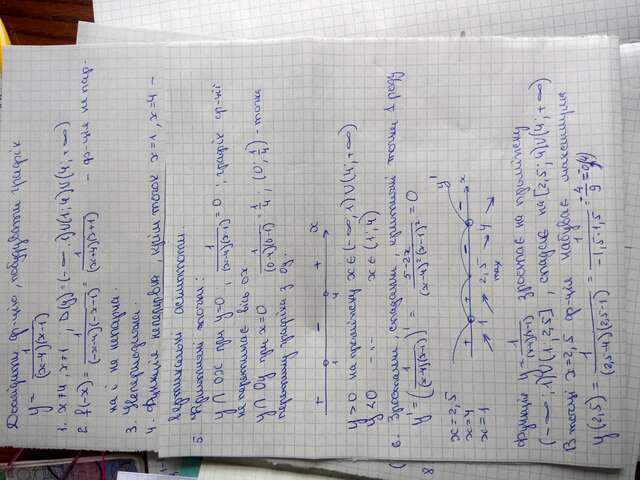 Дослідити ф-цію, побудувати графік
y = 1/((x-4)(x-1))
1. x≠4, x≠1, D(y)=(-∞;1)∪(1;4)∪(4;+∞)
2. f(-x) = 1/((-x-4)(-x-1)) = 1/((x+4)(x+1)) - ф-ція не пар-
на і не непарна.
3. Неперіодична.
4. Функція неперервна, крім точок x=1, x=4 -
вертикальні асимптоти.
5. Критичні точки:
y ∩ OX при y=0, 1/((x-4)(x-1)) = 0; графік ф-ції
не перетинає вісь OX
y ∩ Oy при x=0 1/((0-4)(0-1)) = 1/4; (0; 1/4) - точка
перетину графіка з Oy
+ 1 - 4 + x
y>0 на проміжку x∈(-∞;1)∪(4;+∞)
y<0 -"- x∈(1;4)
6. Зростання, спадання, критичні точки 1 роду
y' = (1/((x-4)(x-1)))' = (5-2x)/((x-4)²(x-1)²) = 0
x=2,5
x=4
x=1
+ 1 + 2,5 - 4 - x
y'
max
Функція y = 1/((x-4)(x-1)) зростає на проміжку
(-∞;1)∪(1;2,5], спадає на [2,5;4)∪(4;+∞)
В точці x=2,5 ф-ція набуває максимума
y(2,5) = 1/((2,5-4)(2,5-1)) = 1/(-1,5·1,5) = -4/9 =